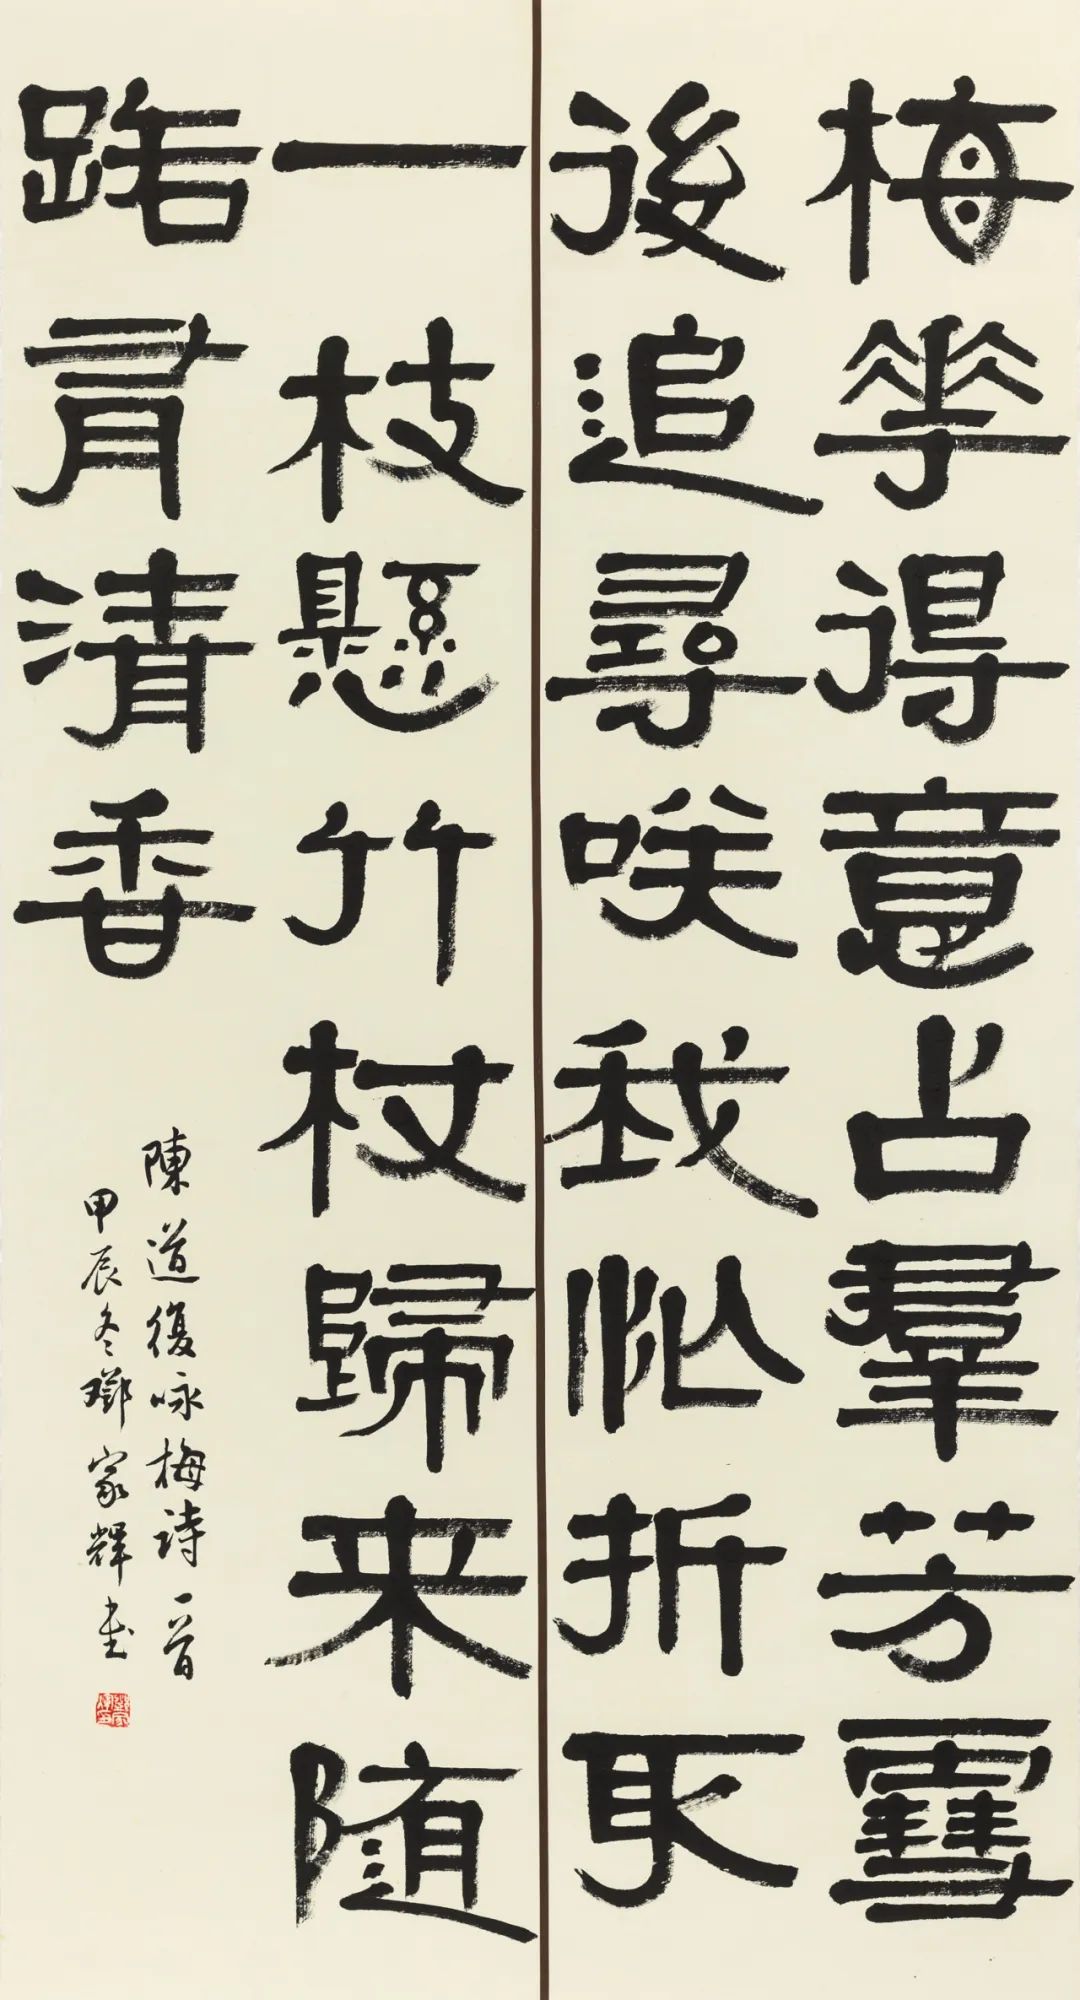 梅華得意占羣芳雪
後追尋咲我忙折取
一枝懸竹杖歸来随
路有清香
陳道復咏梅詩一首
甲辰冬鄧家輝書